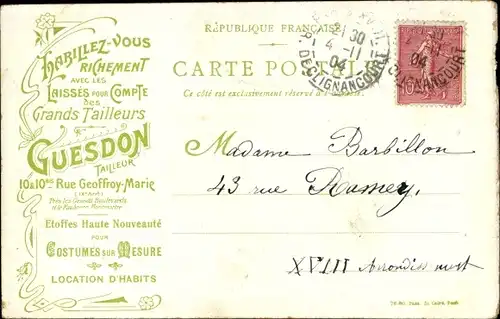 HABILLEZ-VOUS
RICHEMENT
AVEC LES
LAISSÉS POUR COMPTE
des
Grands Tailleurs
GUESDON
TAILLEUR
10 & 10 BIS Rue Geoffroy-Marie
Près les Grands Boulevards
et le Faubourg Montmartre
Etoffes Haute Nouveauté
POUR
COSTUMES SUR MESURE
LOCATION D'HABITS
RÉPUBLIQUE FRANÇAISE
CARTE POSTALE
Ce côté est exclusivement réservé à l'adresse.
30
4 -11
04
R. DE CLIGNANCOURT
11
04
CLIGNANCOURT
10
Madame Barbillon
43 rue Ramey.
XVIII Arrondissment